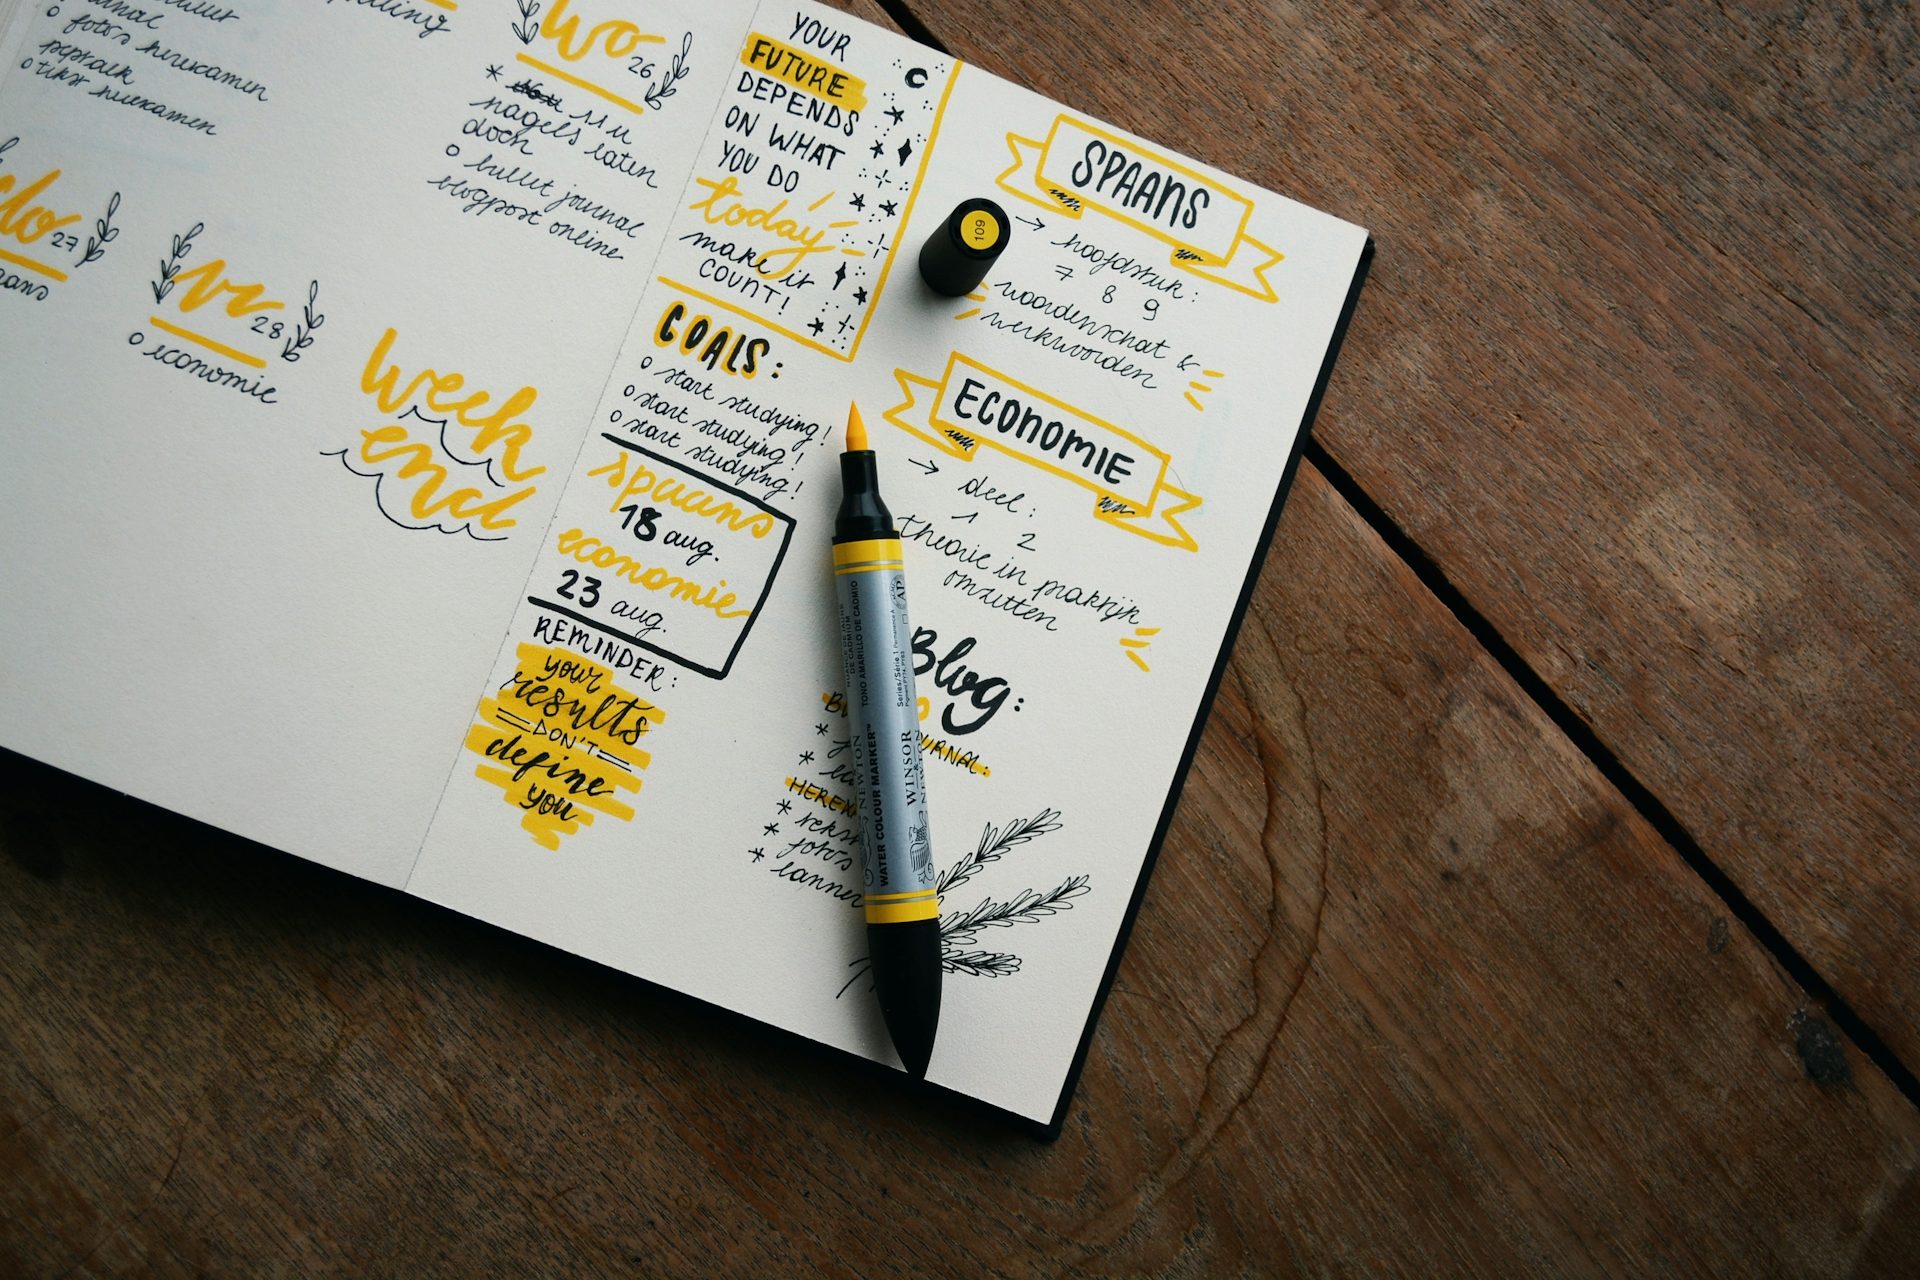 foto's herexamen
peptalk
o tekst herexamen
wo 26
* 11 u
nagels laten
doen
o bullet journal
blogpost online
do 27
vr 28
o economie
week
end
YOUR
FUTURE
DEPENDS
ON WHAT
YOU DO
today
make it
COUNT!
GOALS:
o start studying!
o start studying!
o start studying!
spaans
18 aug.
economie
23 aug.
REMINDER:
your
results
DON'T
define
you
SPAANS
→ hoofdstuk:
7 8 9
woordenschat &
werkwoorden
ECONOMIE
→ deel:
1 2
theorie in praktijk
omzetten
Blog:
URNAL:
HEREX
* tekst
* foto's
109
WINSOR
& NEWTON
WATER COLOUR MARKER™
NEWTON
TONO AMARILLO DE CADMIO
DE CADMIUM
Series/Série 1
AP